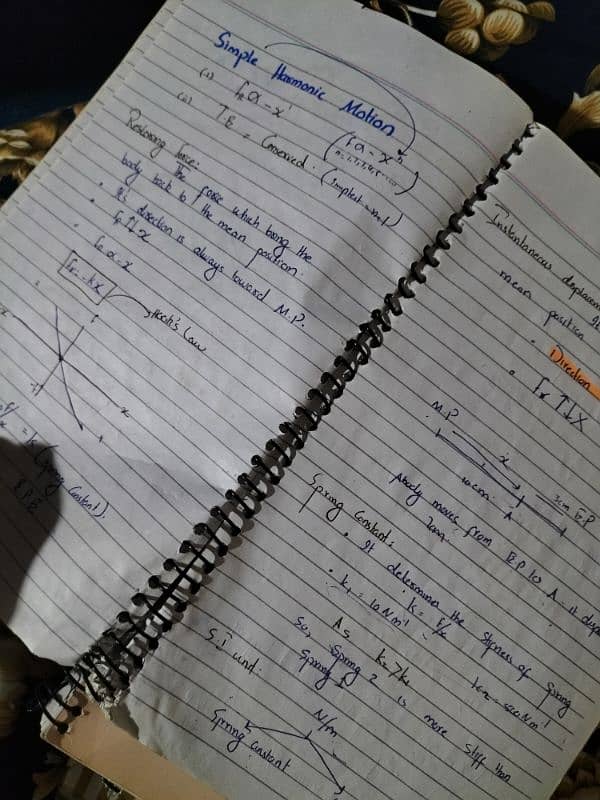 Simple Harmonic Motion
(1) F α -x¹
(2) T.E = Conserved. (Simplest
(F α -xⁿ
Restoring Force:
The force which bring the
body back to the mean position.
• It's direction is always toward M.P.
• F ↑↓ x
• F α -x
F = -kx
Hook's Law
F
x
= k (Spring Constant).
Instantaneous
mean position
Direction
• F ↑↓ X
M.P
x
10cm
A
3cm E.P
A body moves from E.P to A, it
7cm
Spring Constant:
• It determine the stiffness of Spring
k = F/x
• k₁ = 10 Nm⁻¹
k₂ = 500 Nm⁻¹
As k₂ > k₁
So, Spring 2 is more stiff than
Spring 1
S.I unit:
N/m
Spring constant